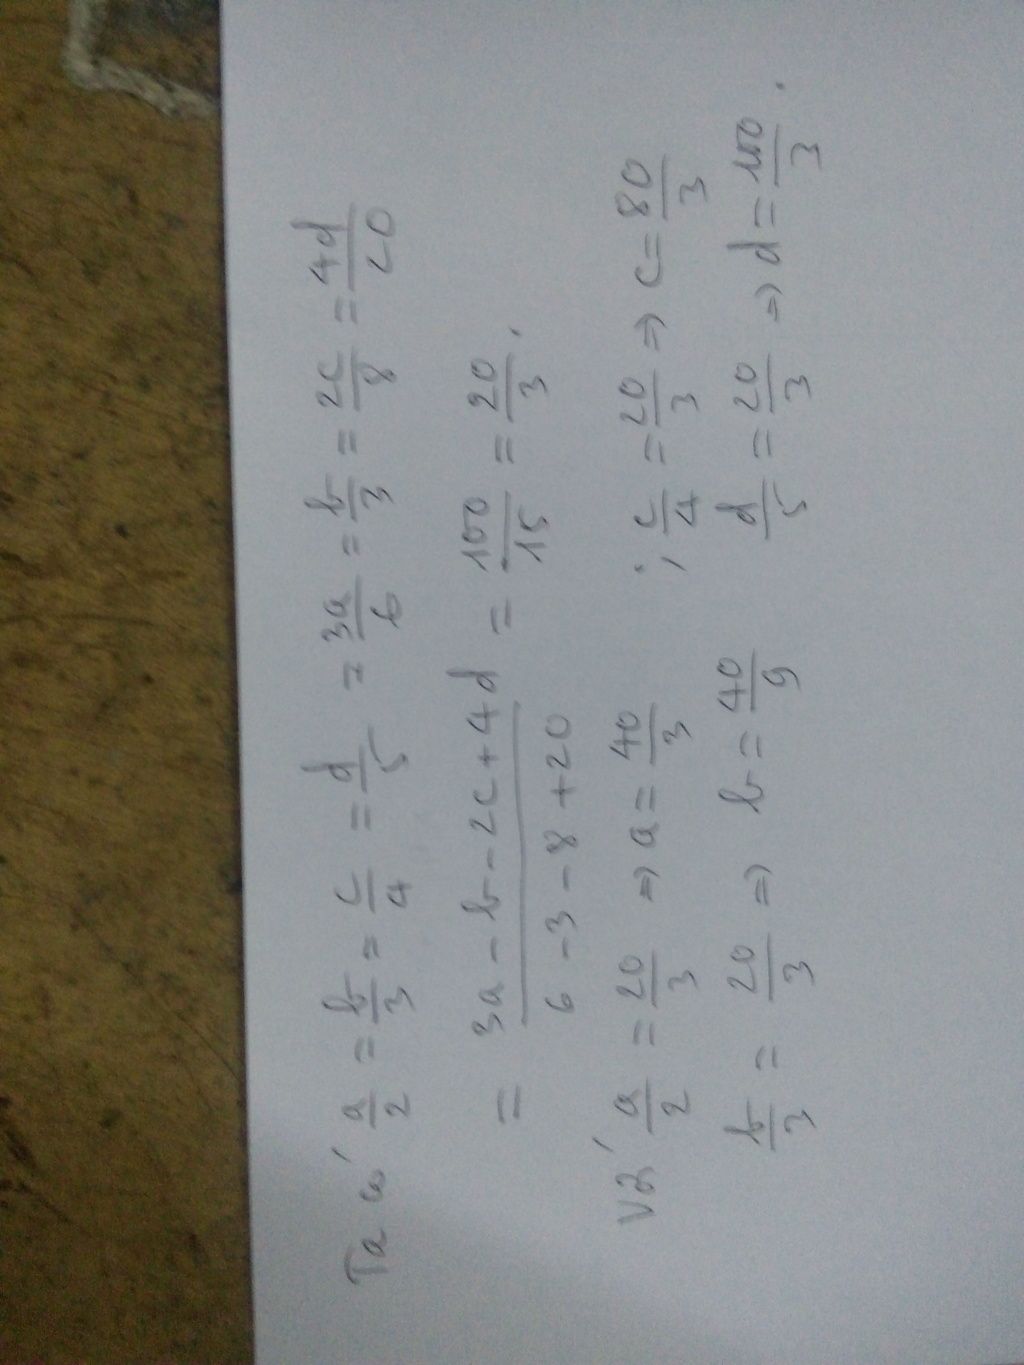 Ta có a/2 = b/3 = c/4 = d/5 = 3a/6 = b/3 = 2c/8 = 4d/20
= (3a - b - 2c + 4d)/(6 - 3 - 8 + 20) = 100/15 = 20/3.
Vậy a/2 = 20/3 => a = 40/3 ; c/4 = 20/3 => c = 80/3
b/3 = 20/3 => b = 40/9 d/5 = 20/3 => d = 100/3.